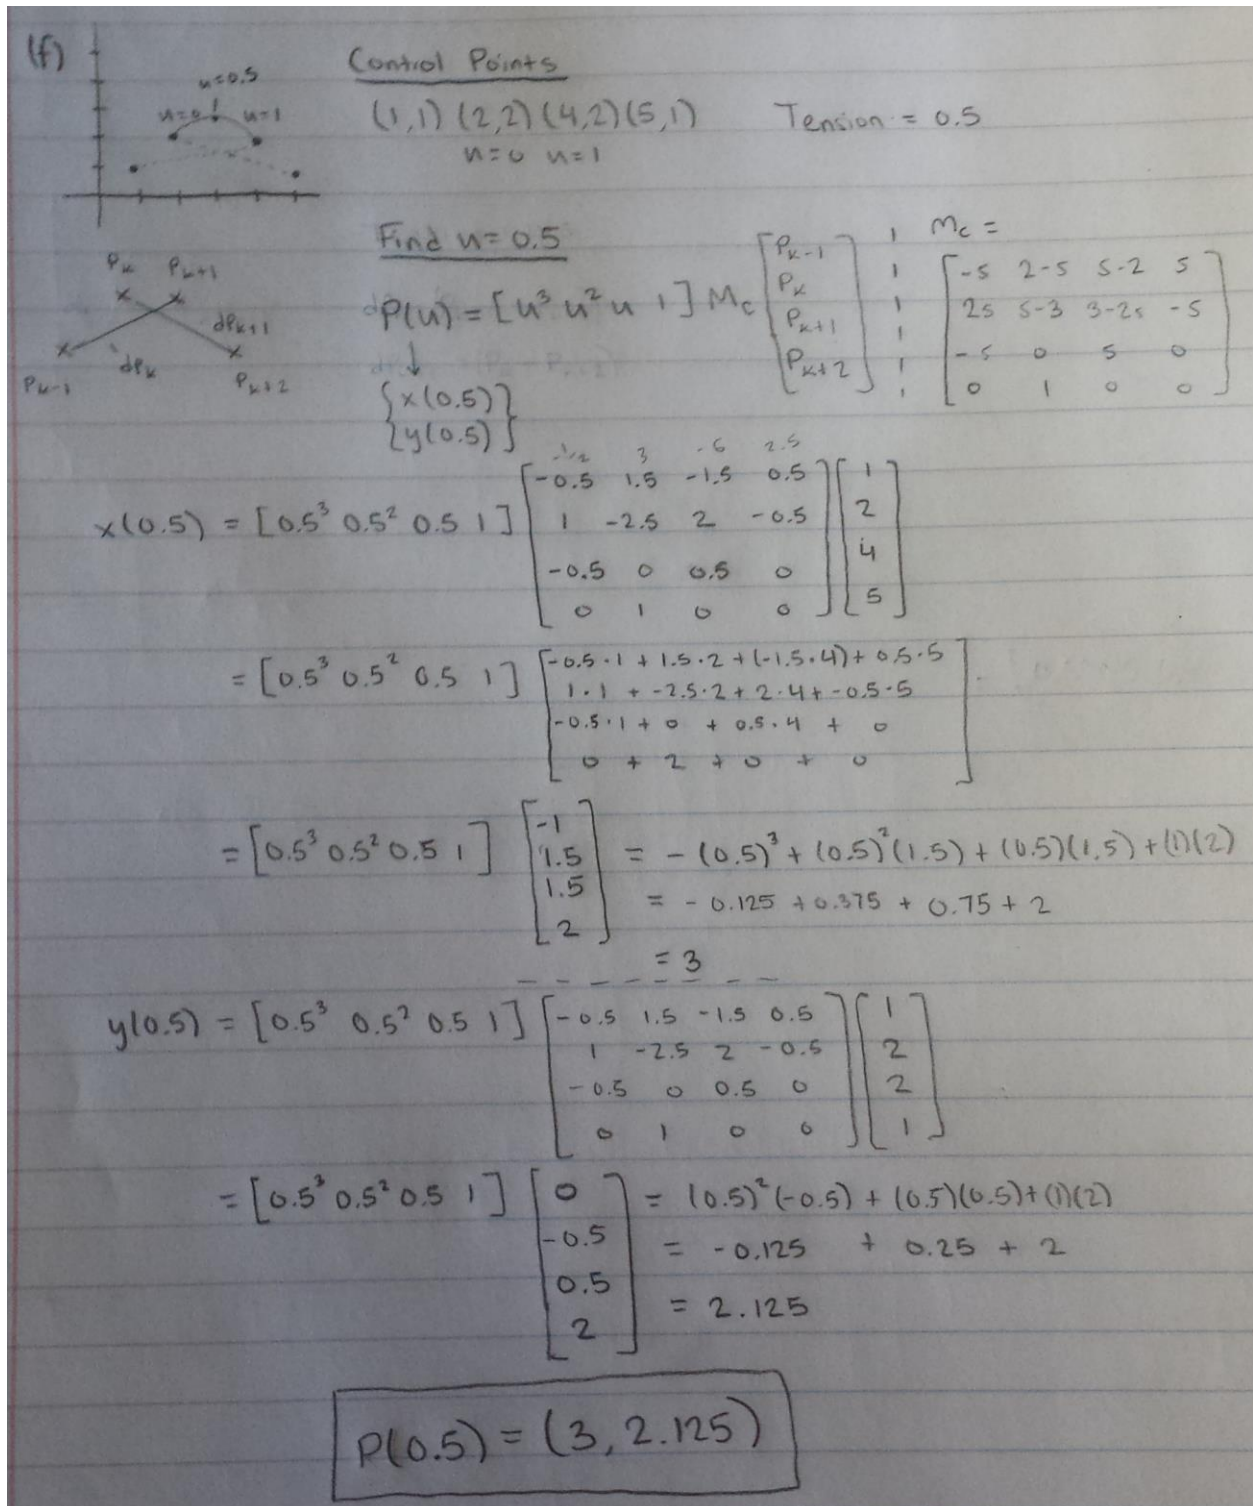 (f)
Control Points
u=0.5
u=0 u=1
(1,1) (2,2) (4,2) (5,1) Tension = 0.5
u=0 u=1
Find u=0.5
Pk Pk+1
dPk+1
dPk
Pk-1 Pk+2
P(u) = [u³ u² u 1] Mc [Pk-1
Pk
Pk+1
Pk+2]
Mc =
[-s 2-s s-2 s
2s s-3 3-2s -s
-s 0 s 0
0 1 0 0]
{x(0.5)}
{y(0.5)}
-1/2 3 -6 2.5
x(0.5) = [0.5³ 0.5² 0.5 1] [-0.5 1.5 -1.5 0.5] [1]
1 -2.5 2 -0.5 2
-0.5 0 0.5 0 4
0 1 0 0 5
= [0.5³ 0.5² 0.5 1] [-0.5·1 + 1.5·2 + (-1.5·4) + 0.5·5
1·1 + -2.5·2 + 2·4 + -0.5·5
-0.5·1 + 0 + 0.5·4 + 0
0 + 2 + 0 + 0]
= [0.5³ 0.5² 0.5 1] [-1 1.5 1.5 2] = -(0.5)³ + (0.5)²(1.5) + (0.5)(1.5) + (1)(2)
= -0.125 + 0.375 + 0.75 + 2
= 3
y(0.5) = [0.5³ 0.5² 0.5 1] [-0.5 1.5 -1.5 0.5] [1]
1 -2.5 2 -0.5 2
-0.5 0 0.5 0 2
0 1 0 0 1
= [0.5³ 0.5² 0.5 1] [0 -0.5 0.5 2] = (0.5)²(-0.5) + (0.5)(0.5) + (1)(2)
= -0.125 + 0.25 + 2
= 2.125
P(0.5) = (3, 2.125)